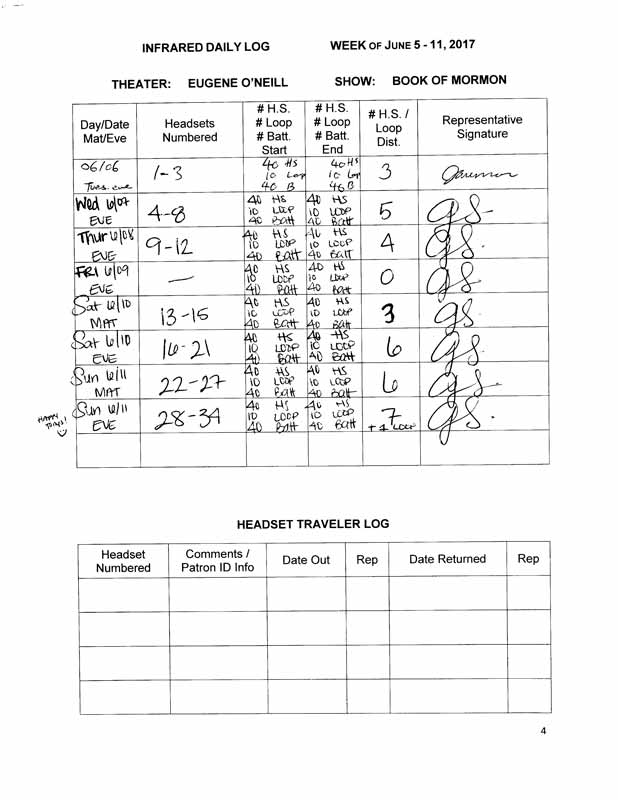 INFRARED DAILY LOG WEEK OF JUNE 5 - 11, 2017
THEATER: EUGENE O'NEILL SHOW: BOOK OF MORMON
Day/Date Mat/Eve Headsets Numbered # H.S. # Loop # Batt. Start # H.S. # Loop # Batt. End # H.S. / Loop Dist. Representative Signature
06/06 Tues. eve 1-3 40 HS 10 Loop 40 B 40 HS 10 Loop 40 B 3
Wed 6/07 EVE 4-8 40 HS 10 LOOP 40 Batt 40 HS 10 LOOP 40 Batt 5 GS.
Thur 6/08 EVE 9-12 40 HS 10 LOOP 40 Batt 40 HS 10 LOOP 40 BATT 4 GS.
FRI 6/09 EVE — 40 HS 10 LOOP 40 Batt 40 HS 10 LOOP 40 Batt 0 GS.
Sat 6/10 MAT 13-15 40 HS 10 LOOP 40 Batt 40 HS 10 LOOP 40 Batt 3 GS.
Sat 6/10 EVE 16-21 40 HS 10 LOOP 40 Batt 40 HS 10 LOOP 40 Batt 6 GS.
Sun 6/11 MAT 22-27 40 HS 10 LOOP 40 Batt 40 HS 10 LOOP 40 Batt 6 GS.
HAPPY TONYS! Sun 6/11 EVE 28-34 40 HS 10 LOOP 40 Batt 40 HS 10 LOOP 40 Batt 7 + 1 LOOP GS.
HEADSET TRAVELER LOG
Headset Numbered Comments / Patron ID Info Date Out Rep Date Returned Rep
4